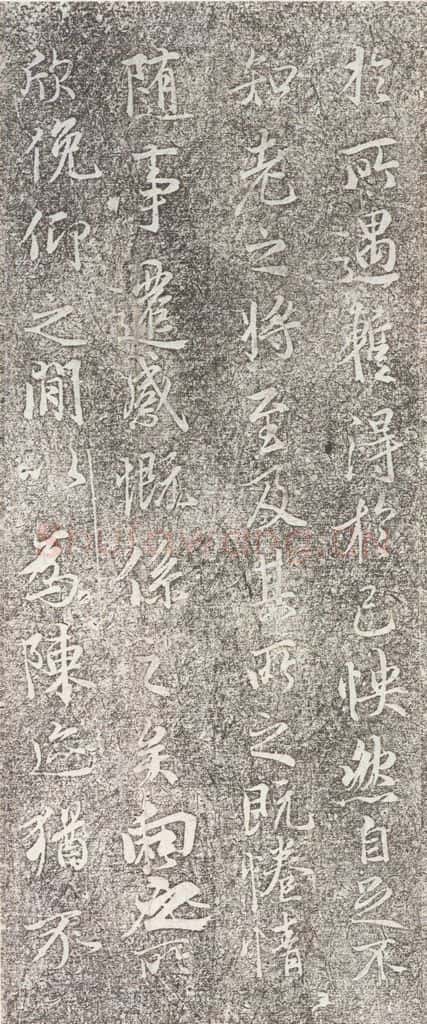 於所遇暫得於己怏然自足不
知老之將至及其所之既惓情
隨事遷感慨係之矣向之所
欣俛仰之間以為陳迹猶不